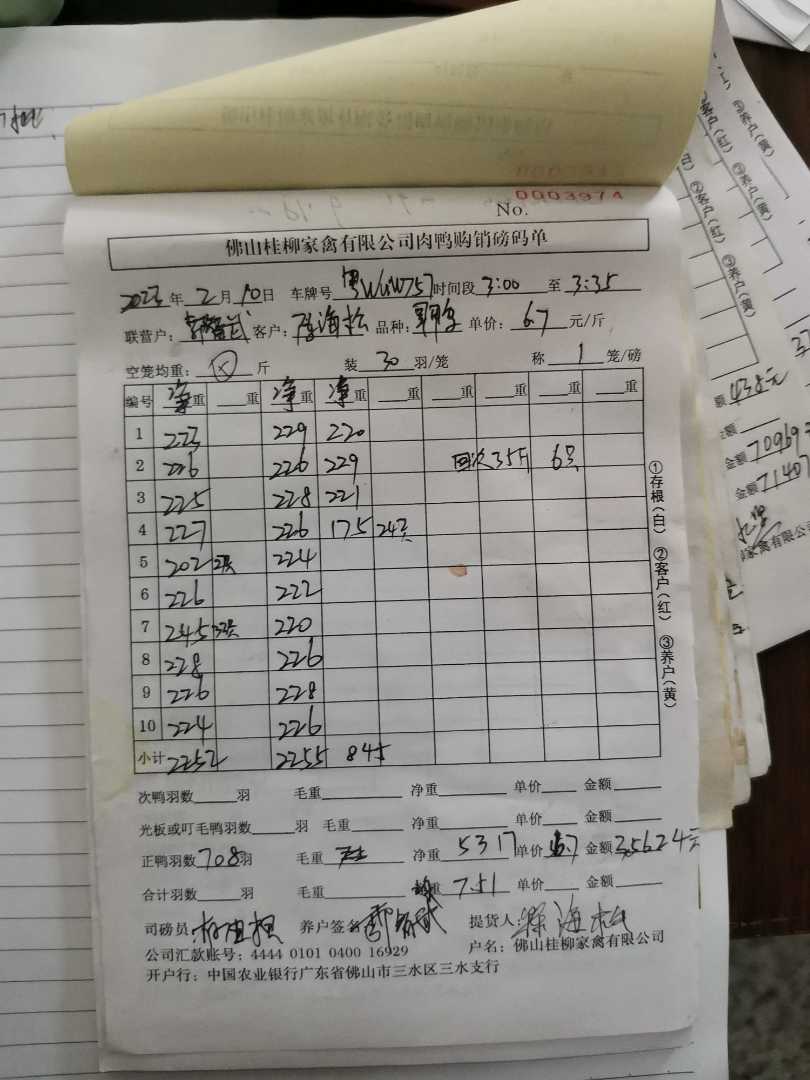 0003974
No.
佛山桂柳家禽有限公司肉鸭购销磅码单
2023年2月10日 车牌号 粤WUW757 时间段 3:00 至 3:35
联营户: 客户: 海松 品种: 单价: 6.7 元/斤
空笼均重: 斤 装 30 羽/笼 称 1 笼/磅
编号 净重 重 净重 净重 重 重 重 重 重
1 223 229 220
2 226 226 229 回次35斤 6只
3 225 228 221
4 227 226 175 24只
5 202 224
6 226 222
7 245 32只 220
8 228 226
9 226 228
10 224 226
小计 2252 2255 845
①存根(白) ②客户(红) ③养户(黄)
次鸭羽数 羽 毛重 净重 单价 金额
光板或叮毛鸭羽数 羽 毛重 净重 单价 金额
正鸭羽数 708 羽 毛重 净重 5317 单价 6.7 金额 35624元
合计羽数 羽 毛重 均重 7.51 单价 金额
司磅员 养户签名 提货人: 海松
公司汇款账号: 4444 0101 0400 16929 户名: 佛山桂柳家禽有限公司
开户行: 中国农业银行广东省佛山市三水区三水支行
②养户(黄)
③养户(黄)
②客户(红)
③养户(黄)
额 438元
金额
金额 70969
金额 71407
家禽有限公